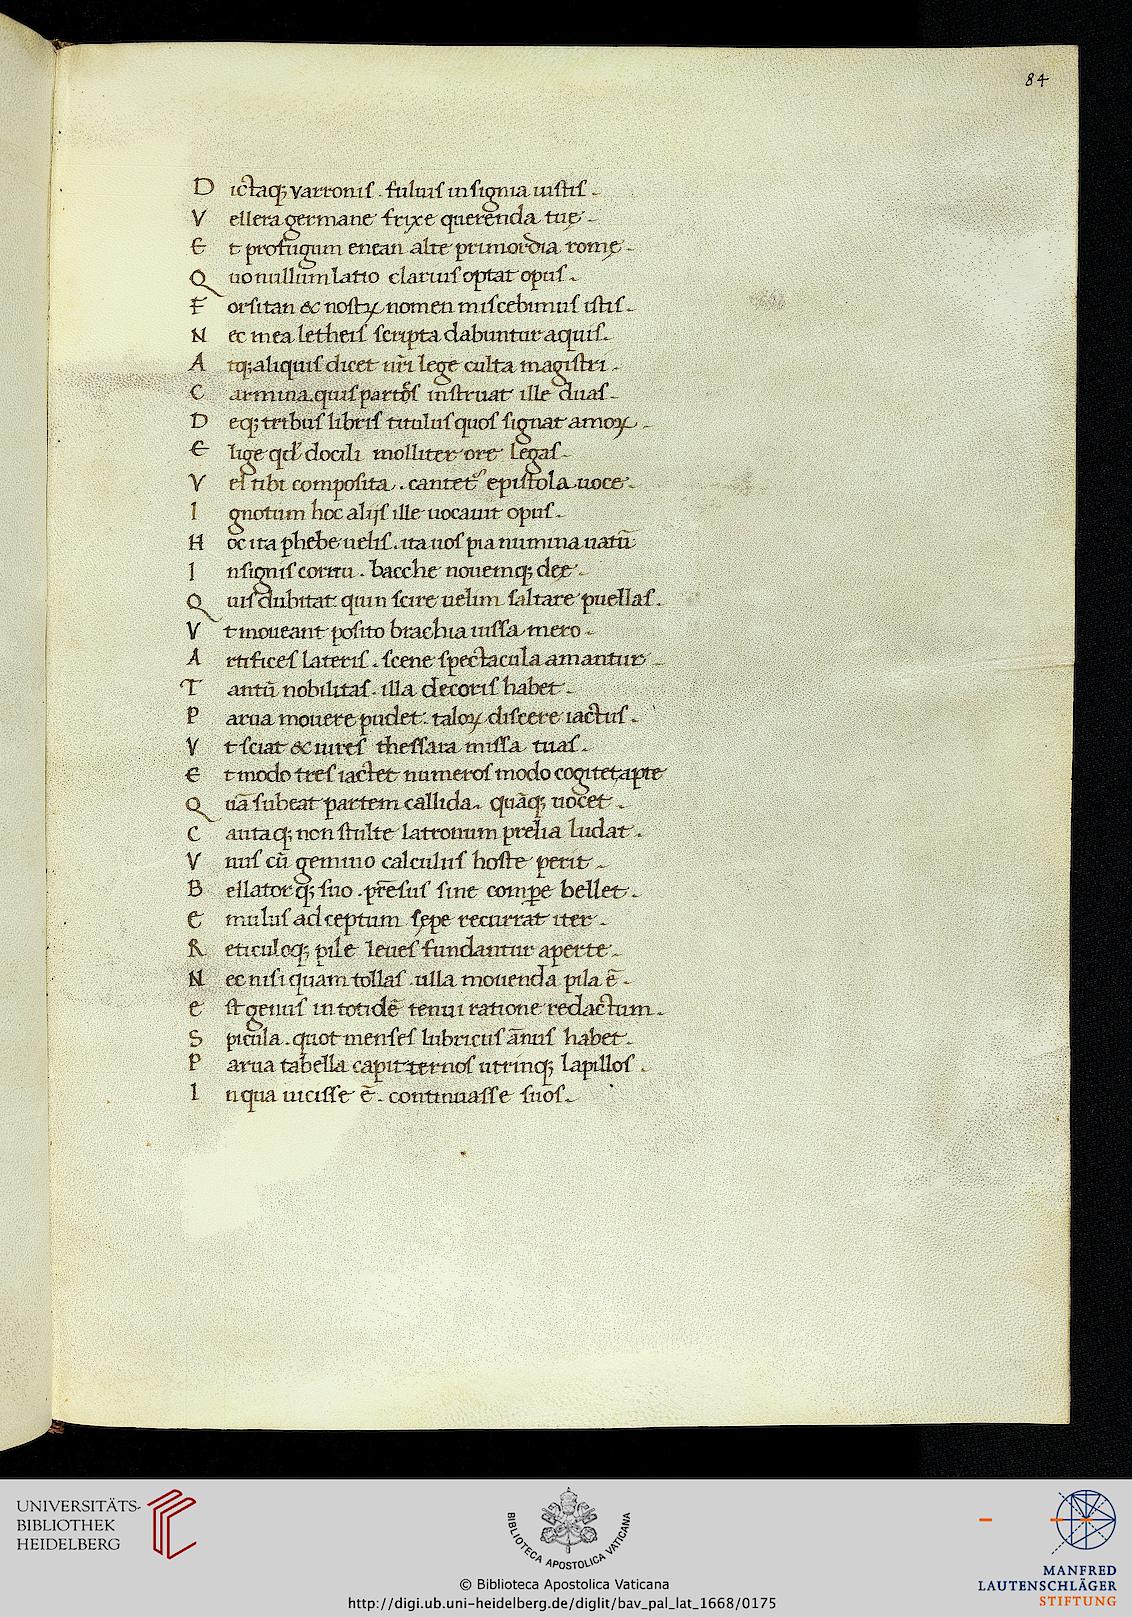 84
D ictaq; varronis . fuluis insignia iustis .
V ellera germane frixe querenda tuę .
E t profugum enean alte primordia romę .
Q uo nullum latio clarius optat opus .
F orsitan & nostꝝ nomen miscebimus istis .
N ec mea letheis scripta dabuntur aquis .
A tq; aliquis dicet nr̃i lege culta magistri .
C armina quis partes instruat ille duas .
D eq; tribus libris titulus quos signat amoꝝ .
E lige qd' docili molliter ore legas .
V el tibi composita . cantet epistola uoce .
I gnotum hoc alijs ille uocauit opus .
H oc ita phebe uelis . ita uos pia numina uatū
I nsignis cornu . bacche nouemq; deę .
Q uis dubitat quin scire uelim saltare puellas .
V t moueant posito brachia iussa mero .
A rtifices lateris . scene spectacula amantur .
T antū nobilitas . illa decoris habet .
P arua mouere pudet . taloꝝ discere iactus .
V t sciat & uires thessara missa tuas .
E t modo tres iactet numeros modo cogitet apte
Q uā subeat partem callida . quāq; uocet .
C autaq; non stulte latronum prelia ludat .
V nus cū gemino calculus hoste perit .
B ellatorq; suo . prēsus sine compe bellet .
E mulus ad ceptum sepe recurrat iter .
R eticuloq; pile leues fundantur aperte .
N ec nisi quam tollas . ulla mouenda pila ē .
E st genus in totidē tenui ratione redactum .
S picula . quot menses lubricus ānus habet .
P arua tabella capit ternos utrinq; lapillos .
I n qua uicisse ē . continuasse suos .
UNIVERSITÄTS-
BIBLIOTHEK
HEIDELBERG
BIBLIOTECA APOSTOLICA VATICANA
© Biblioteca Apostolica Vaticana
http://digi.ub.uni-heidelberg.de/diglit/bav_pal_lat_1668/0175
MANFRED
LAUTENSCHLÄGER
STIFTUNG